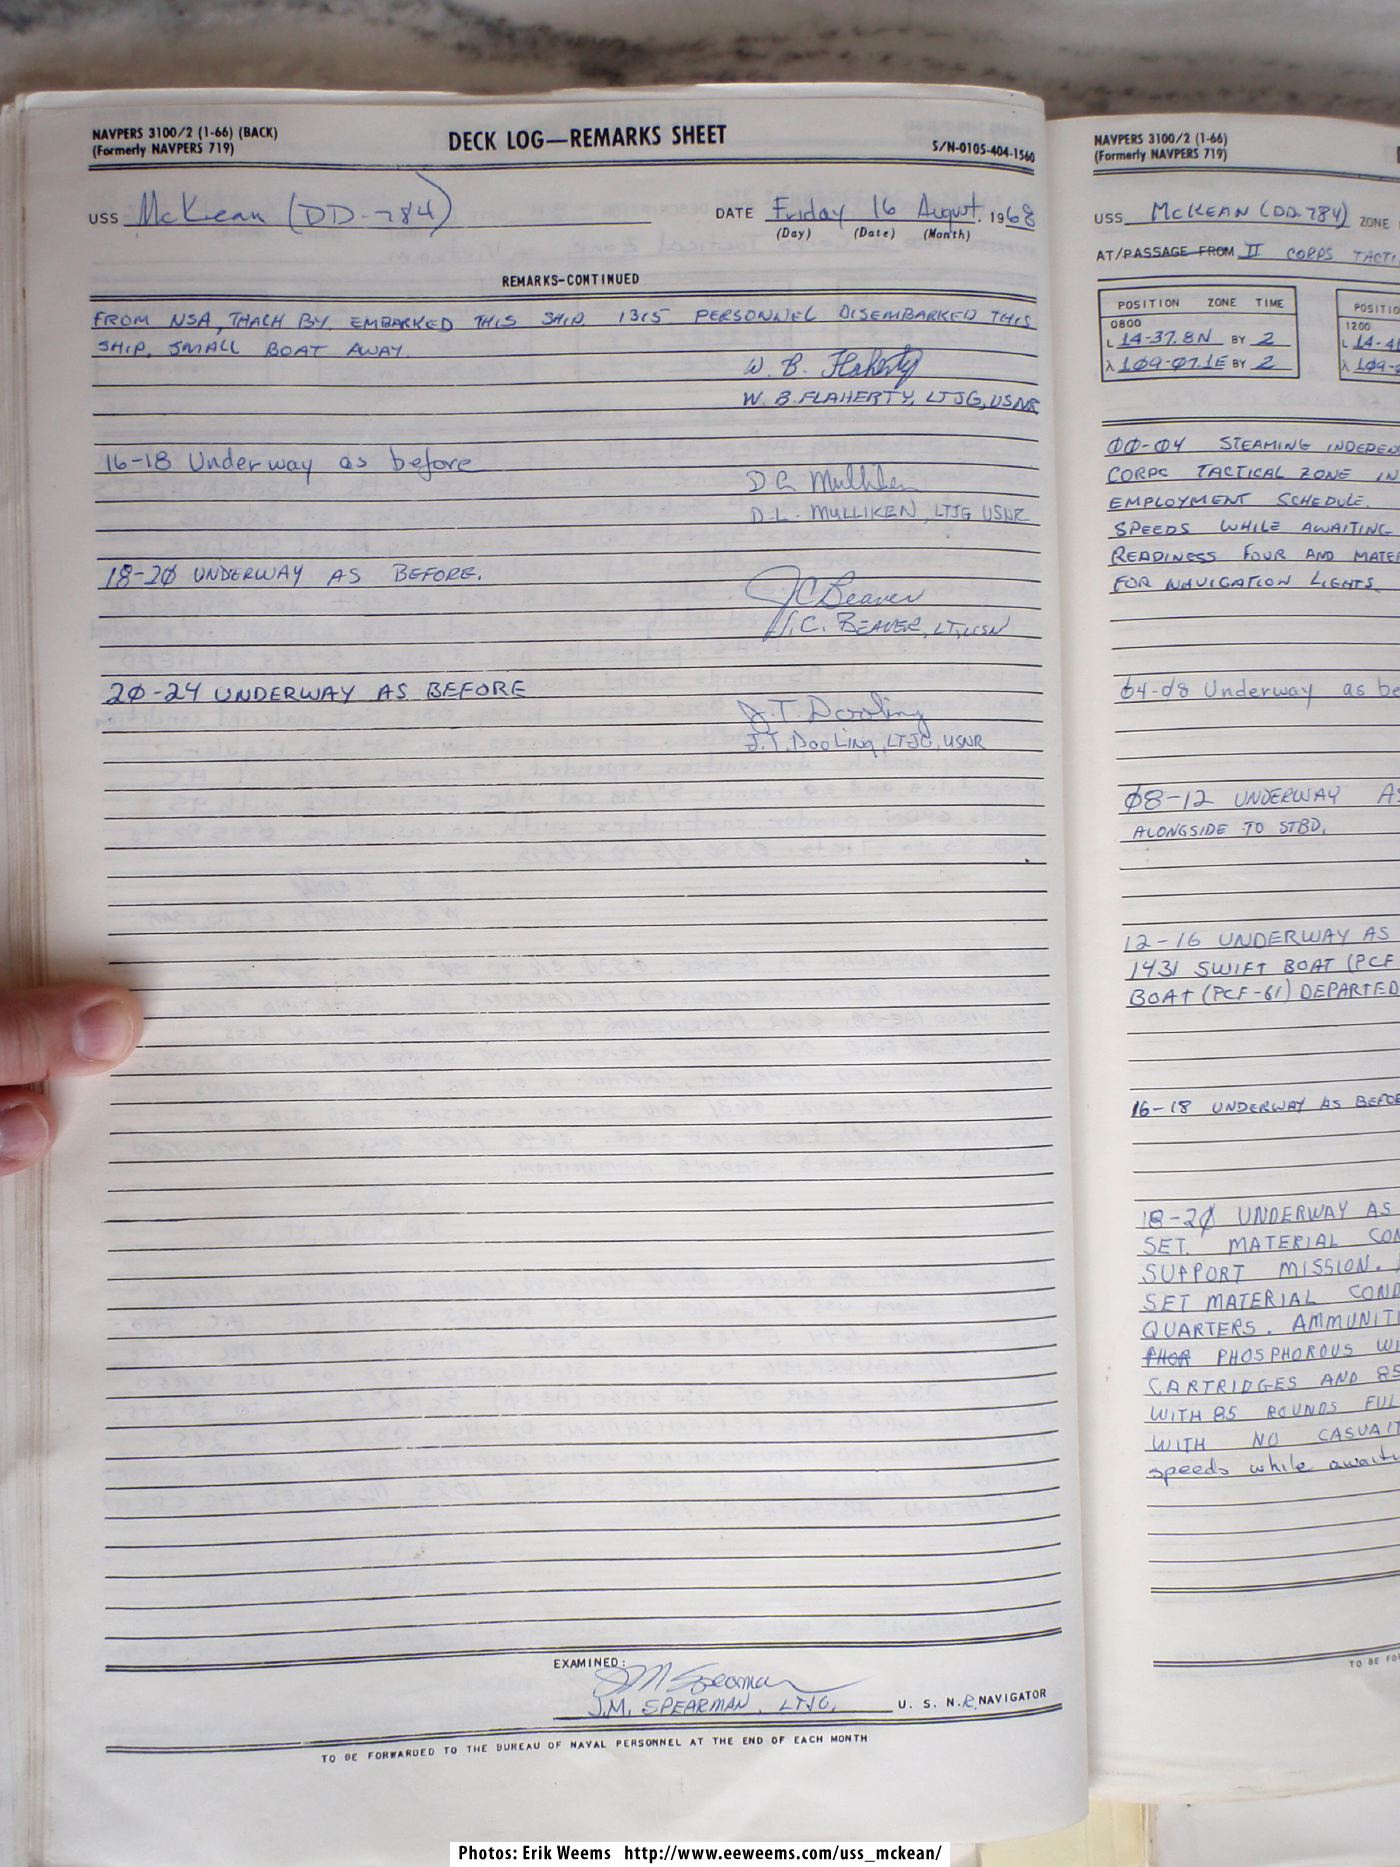 NAVPERS 3100/2 (1-66) (BACK)
(Formerly NAVPERS 719)
DECK LOG—REMARKS SHEET
S/N-0105-404-1560
USS McKean (DD-784)
DATE Friday 16 August, 1968
(Day) (Date) (Month)
REMARKS-CONTINUED
FROM NSA, THACH BY, EMBARKED THIS SHIP. 1315 PERSONNEL DISEMBARKED THIS
SHIP, SMALL BOAT AWAY.
W. B. Flaherty
W. B. FLAHERTY, LTJG, USNR
16-18 Underway as before
D L Mulliken
D. L. MULLIKEN, LTJG USNR
18-2Ø UNDERWAY AS BEFORE.
J C Beaver
J. C. BEAVER, LT, USN
2Ø-24 UNDERWAY AS BEFORE
J. T. Dooling
J. T. DOOLING, LTJG, USNR
EXAMINED:
J M Spearman
J.M. SPEARMAN, LTJG, U. S. N. R. NAVIGATOR
TO BE FORWARDED TO THE BUREAU OF NAVAL PERSONNEL AT THE END OF EACH MONTH
NAVPERS 3100/2 (1-66)
(Formerly NAVPERS 719)
USS McKEAN (DD-784) ZONE
AT/PASSAGE FROM II CORPS TACTI
POSITION ZONE TIME
0800
L 14-37.8N BY 2
λ 1Ø9-Ø7.1E BY 2
POSITIO
1200
L 14-41
λ 1Ø9-
ØØ-Ø4 STEAMING INDEPEN
CORPS TACTICAL ZONE IN
EMPLOYMENT SCHEDULE.
SPEEDS WHILE AWAITING
READINESS FOUR AND MATE
FOR NAVIGATION LIGHTS.
Ø4-Ø8 Underway as be
Ø8-12 UNDERWAY AS
ALONGSIDE TO STBD.
12-16 UNDERWAY AS
1431 SWIFT BOAT (PCF
BOAT (PCF-61) DEPARTED
16-18 UNDERWAY AS BEFOR
18-2Ø UNDERWAY AS
SET. MATERIAL CON
SUPPORT MISSION.
SET MATERIAL COND
QUARTERS. AMMUNITI
PHOR PHOSPHOROUS WI
CARTRIDGES AND 85
WITH 85 ROUNDS FUL
WITH NO CASUALT
speeds while awaiti
TO BE FOR
Photos: Erik Weems http://www.eeweems.com/uss_mckean/